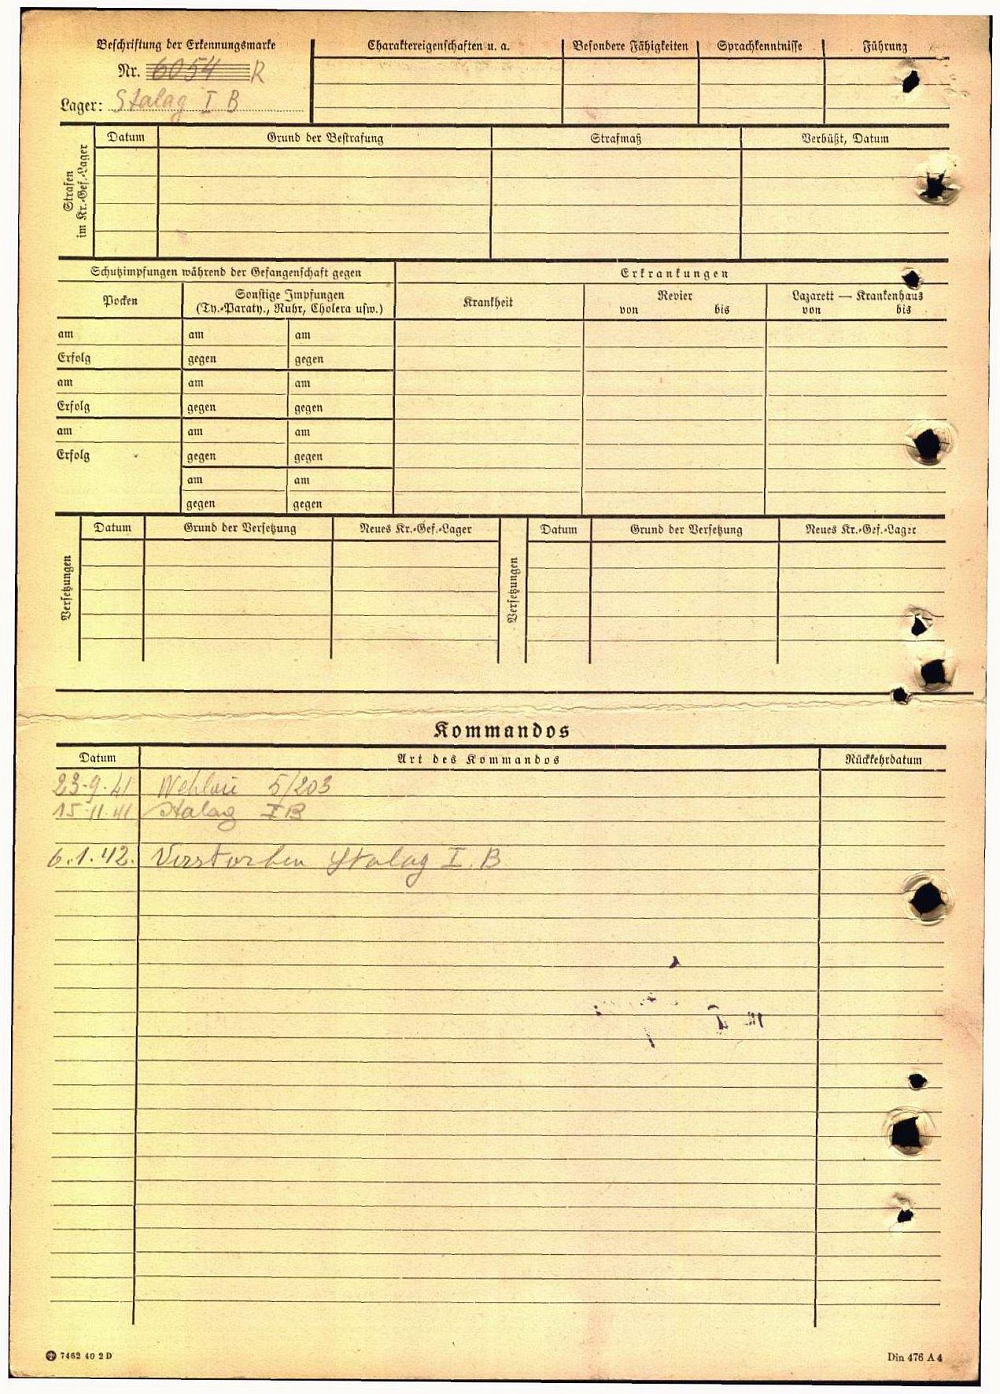 Beschriftung der Erkennungsmarke
Nr. 6054 R
Lager: Stalag I B
Charaktereigenschaften u. a.
Besondere Fähigkeiten
Sprachkenntnisse
Führung
Strafen im Kr.-Gef.-Lager
Datum
Grund der Bestrafung
Strafmaß
Verbüßt, Datum
Schutzimpfungen während der Gefangenschaft gegen
Erkrankungen
Pocken
Sonstige Impfungen
(Ty.-Paraty., Ruhr, Cholera usw.)
Krankheit
Revier
von bis
Lazarett — Krankenhaus
von bis
am am am
Erfolg gegen gegen
am am am
Erfolg gegen gegen
am am am
Erfolg gegen gegen
am am
gegen gegen
Versetzungen
Datum
Grund der Versetzung
Neues Kr.-Gef.-Lager
Versetzungen
Datum
Grund der Versetzung
Neues Kr.-Gef.-Lager
Kommandos
Datum
Art des Kommandos
Rückkehrdatum
23.9.41 Wehlau 5/203
15.11.41 Stalag IB
6.1.42. Verstorben Stalag I. B
7462 40 2 D
Din 476 A 4